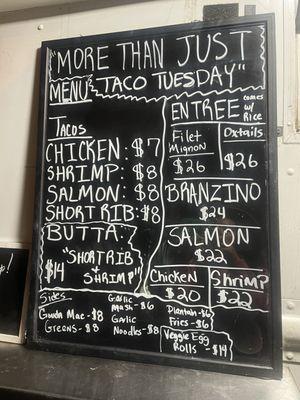 "MORE THAN JUST
TACO TUESDAY"
MENU
TACOS
CHICKEN: $7
SHRIMP: $8
SALMON: $8
SHORT RIB: $8
BUTTA:
"SHORT RIB
+
SHRIMP"
$14
ENTREE comes
w/
Rice
Filet
Mignon
$26
Oxtails
$26
BRANZINO
$24
SALMON
$22
Chicken
$20
Shrimp
$22
Sides
Gouda Mac-$8
Greens-$8
Garlic
Mash-$6
Garlic
Noodles-$8
Plantain-$6
Fries-$6
Veggie Egg
Rolls - $14